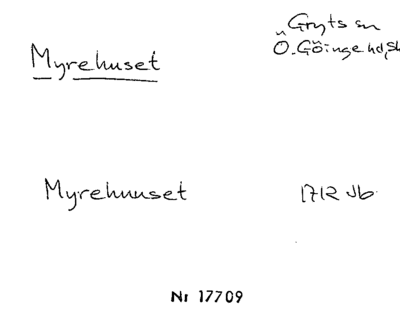 Gryts sn
Myrehuset
Ö. Göinge hd, Sk
Myrehuuset 1712 Jb
Nr 17709